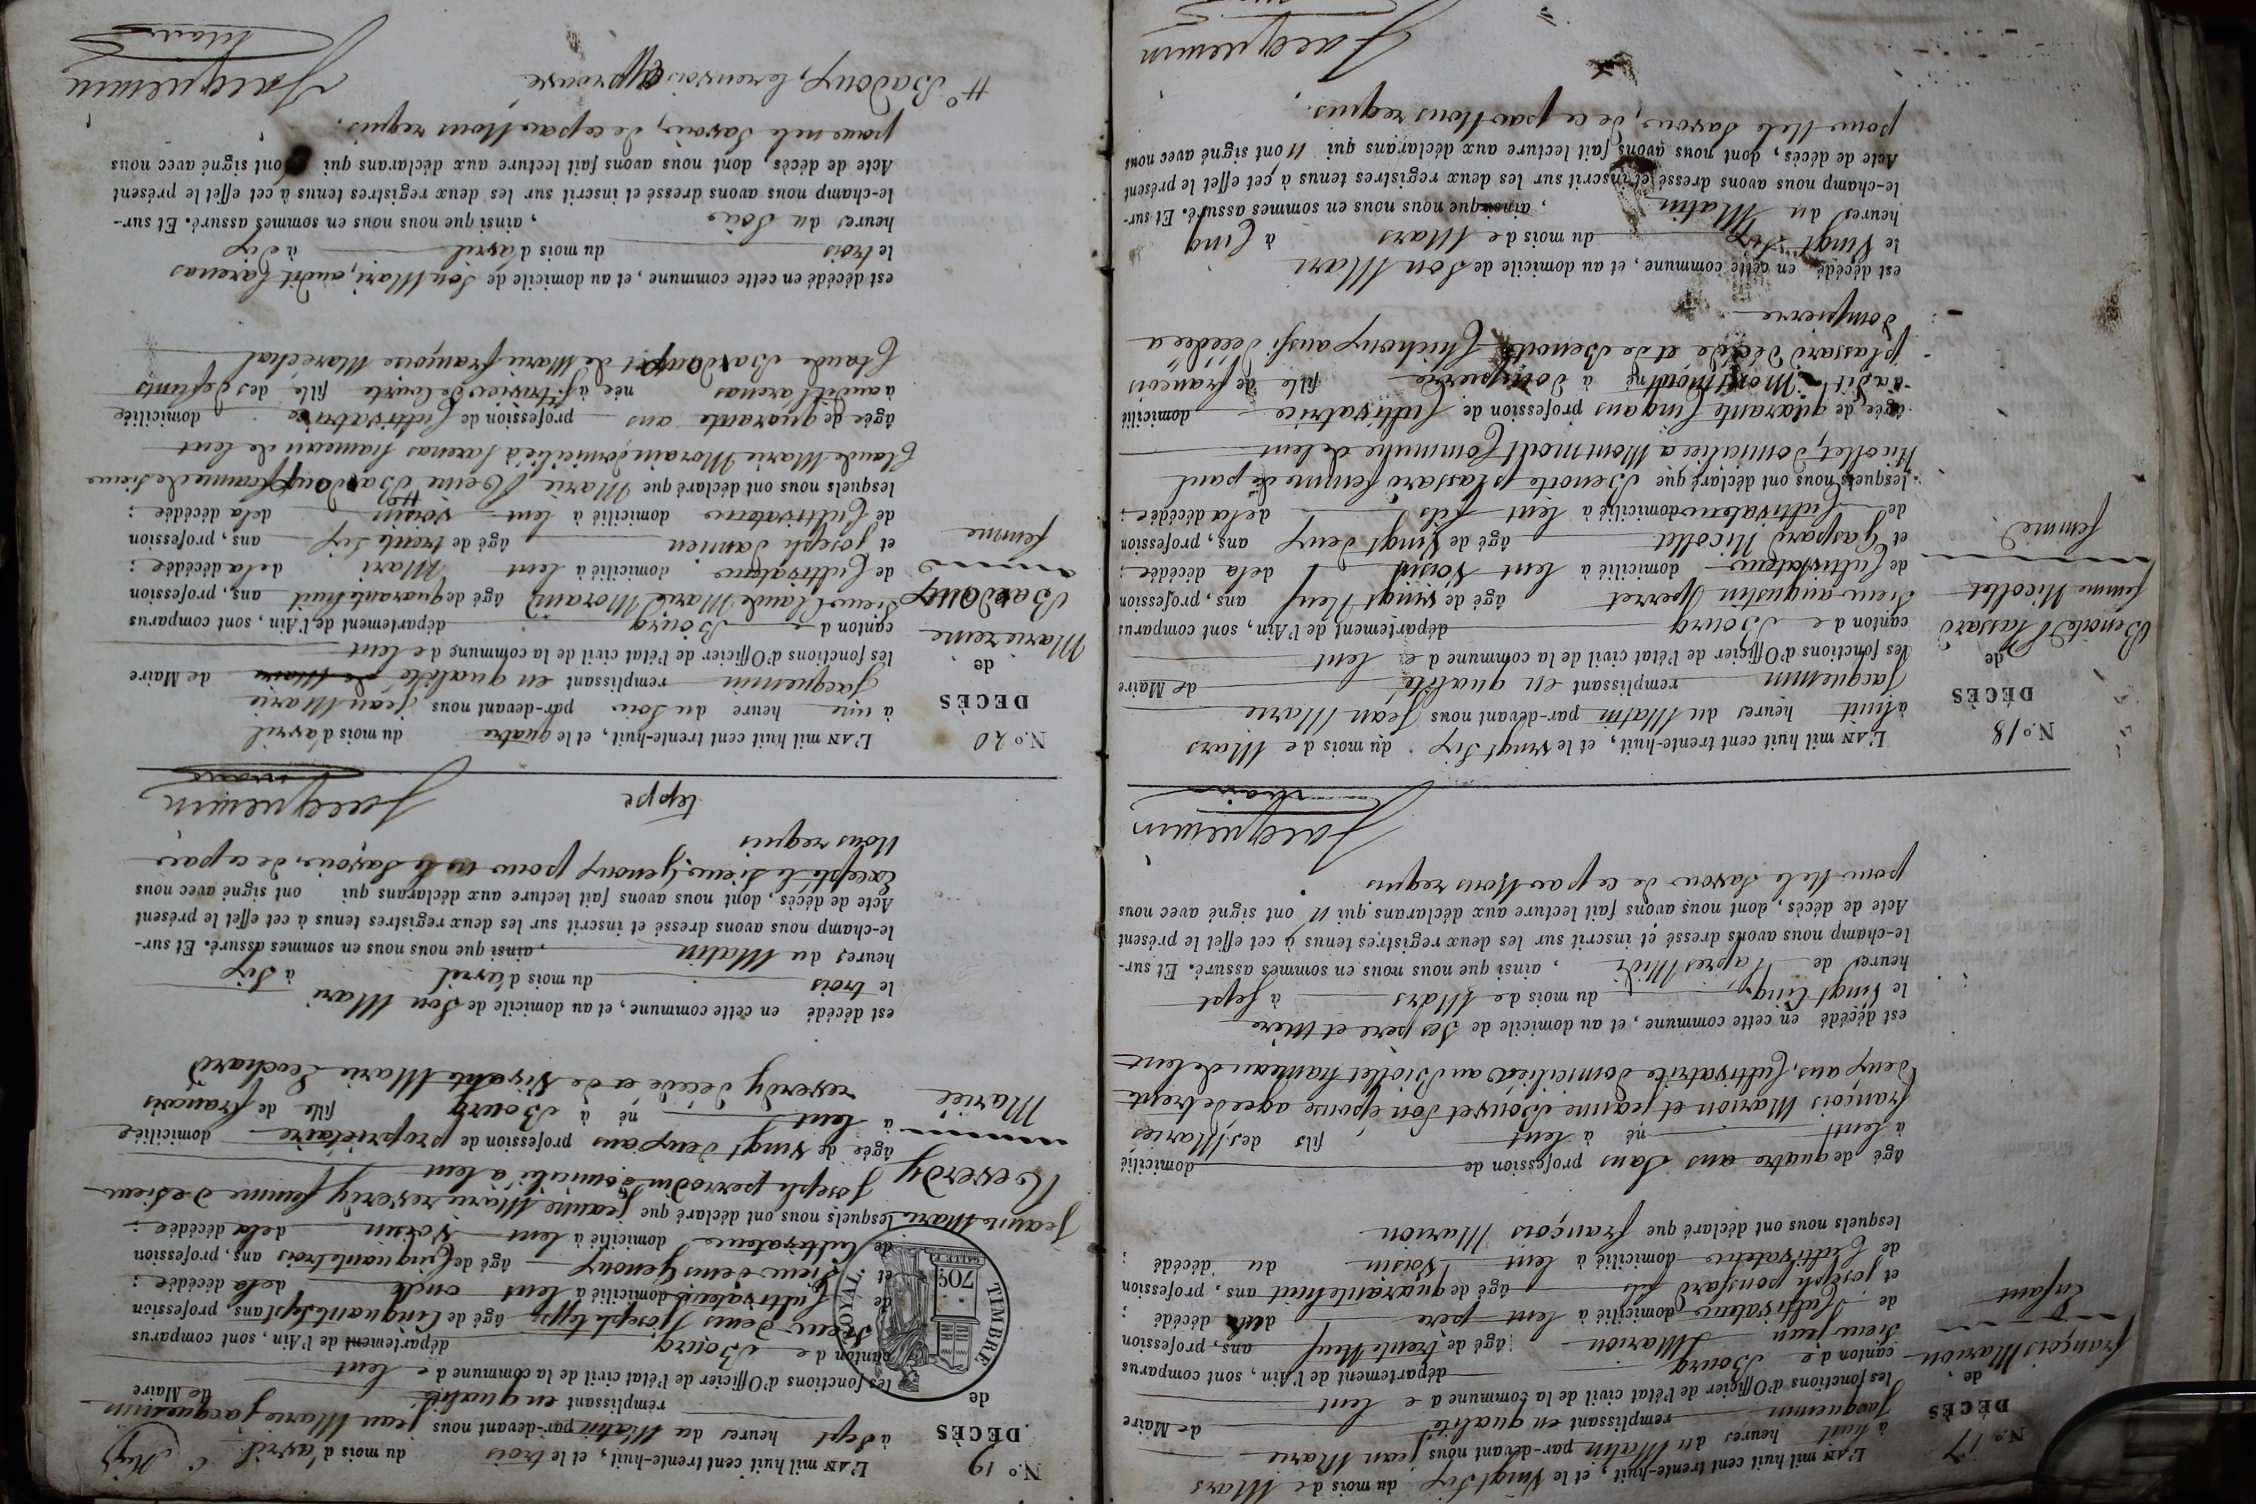 N.° 17
DÉCÈS
de
françois Marion
Enfant
L'AN mil huit cent trente-huit, et le vingt Six du mois de Mars
à huit heures du Matin par-devant nous Jean Marie
Jacquemin remplissant en qualité de Maire
les fonctions d'Officier de l'état civil de la commune de lent
canton de Bourg département de l'Ain, sont comparus
Sieur jean Marion âgé de trente Neuf ans, profession
de Cultivateur domicilié à lent père du décédé :
et joseph ponsard fils âgé de quarante huit ans, profession
de Cultivateur domicilié à lent voisin du décédé :
lesquels nous ont déclaré que françois Marion
âgé de quatre ans Sans profession de domicilié
à lent né à lent fils des Mariés
françois Marion et jeanne Bouvet Son épouse agée de trente
deux ans, Cultivatrice domiciliés au Biollet hameau de lent
est décédé en cette commune, et au domicile de Ses père et Mère
le Vingt Cinq du mois de Mars à Sept
heures de l'après Midi, ainsi que nous nous en sommes assuré. Et sur-
le-champ nous avons dressé et inscrit sur les deux registres tenus à cet effet le présent
Acte de décès, dont nous avons fait lecture aux déclarans qui n ont signé avec nous
pour Ne le Savoir de ce par Nous requis
Jacquemin
Maire
N.° 18
DÉCÈS
de
Benoite Plassard
femme Nicollet
femme
L'AN mil huit cent trente-huit, et le vingt Six du mois de Mars
à huit heures du Matin par-devant nous Jean Marie
Jacquemin remplissant en qualité de Maire
les fonctions d'Officier de l'état civil de la commune de lent
canton de Bourg département de l'Ain, sont comparus
Sieur augustin Perret âgé de vingt Neuf ans, profession
de Cultivateur domicilié à lent Voisin de la décédée :
et Gaspard Nicollet âgé de Vingt deux ans, profession
de Cultivateur domicilié à lent fils de la décédée :
lesquels nous ont déclaré que Benoite plassard femme de paul
Nicollet, domiciliée à Montmodt Commune de lent
âgée de quarante Cinq ans profession de Cultivatrice domicilié
audit Montmodt né à dompierre fille de françois
plassard décédé et de Benoite Chichoux aussi décédée a
dompierre
est décédé en cette commune, et au domicile de Son Mari
le Vingt Six du mois de Mars à Cinq
heures du Matin, ainsi que nous nous en sommes assuré. Et sur-
le-champ nous avons dressé et inscrit sur les deux registres tenus à cet effet le présent
Acte de décès, dont nous avons fait lecture aux déclarans qui n ont signé avec nous
pour Ne le Savoir, de ce par Nous requis.
Jacquemin
N.° 19
DÉCÈS
de
Jeanne Marie
Reverdy
Mariée
TIMBRE ROYAL.
70c
L'AN mil huit cent trente-huit, et le trois du mois d'avril
à Sept heures du Matin par-devant nous Jean Marie Jacquemin
remplissant en qualité de Maire
les fonctions d'Officier de l'état civil de la commune de lent
canton de Bourg département de l'Ain, sont comparus
Sieur Denis Joseph teppe âgé de Cinquante Sept ans, profession
de Cultivateur domicilié à lent oncle de la décédée :
et Sieur denis Genoux âgé de Cinquante trois ans, profession
de Cultivateur domicilié à lent Voisin de la décédée :
lesquels nous ont déclaré que jeanne Marie reverdy femme de Sieur
Joseph perrodin domicilié à lent
âgée de Vingt deux ans profession de propriétaire domiciliée
à lent né à Bourg fille de françois
reverdy décédé et de Vivante Marie Lochard
est décédé en cette commune, et au domicile de Son Mari
le trois du mois d'avril à Six
heures du Matin, ainsi que nous nous en sommes assuré. Et sur-
le-champ nous avons dressé et inscrit sur les deux registres tenus à cet effet le présent
Acte de décès, dont nous avons fait lecture aux déclarans qui ont signé avec nous
Excepté le Sieur Genoux pour ne le Savoir, de ce par
Nous requis
teppe Jacquemin
Maire
N.° 20
DÉCÈS
de
Marie reine
Badoux
femme
L'AN mil huit cent trente-huit, et le quatre du mois d'avril
à une heure du Soir par-devant nous jean Marie
Jacquemin remplissant en qualité de Maire
les fonctions d'Officier de l'état civil de la commune de lent
canton de Bourg département de l'Ain, sont comparus
Sieur Claude Marie Morain âgé de quarante huit ans, profession
de Cultivateur domicilié à lent Mari de la décédée :
et joseph Jannen âgé de trente Six ans, profession
de Cultivateur domicilié à lent voisin de la décédée :
lesquels nous ont déclaré que Marie Reine Badoux femme de Sieur
Claude Marie Morain domicilié à Larenas hameau de lent
âgée de quarante ans profession de Cultivatrice domiciliée
à audit larenas née à St trivier de Courte fille des défunts
Claude Badoux et de Marie françoise Maréchal
est décédée en cette commune, et au domicile de Son Mari, audit Larenas
le trois du mois d'avril à dix
heures du Soir, ainsi que nous nous en sommes assuré. Et sur-
le-champ nous avons dressé et inscrit sur les deux registres tenus à cet effet le présent
Acte de décès, dont nous avons fait lecture aux déclarans qui ont signé avec nous
pour ne le Savoir, de ce par Nous requis.
Badoux, le renvoi approuvé
Jacquemin
Maire